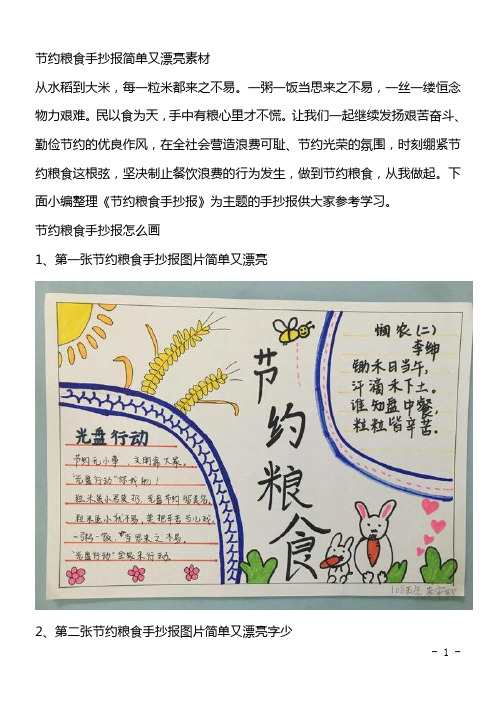 节约粮食手抄报简单又漂亮素材
从水稻到大米，每一粒米都来之不易。一粥一饭当思来之不易，一丝一缕恒念
物力艰难。民以食为天，手中有粮心里才不慌。让我们一起继续发扬艰苦奋斗、
勤俭节约的优良作风，在全社会营造浪费可耻、节约光荣的氛围，时刻绷紧节
约粮食这根弦，坚决制止餐饮浪费的行为发生，做到节约粮食，从我做起。下
面小编整理《节约粮食手抄报》为主题的手抄报供大家参考学习。
节约粮食手抄报怎么画
1、第一张节约粮食手抄报图片简单又漂亮
悯农(二)
李绅
锄禾日当午，
汗滴禾下土。
谁知盘中餐，
粒粒皆辛苦。
节约粮食
光盘行动
节约无小事，文明靠大家。
"光盘行动"你我制！
粒米虽小莫莫扔，光盘节约
粒米虽小犹不易，莫把辛苦当儿戏。
一粥一饭，当思来之不易。
"光盘行动"全家来行动。
2、第二张节约粮食手抄报图片简单又漂亮字少
- 1 -